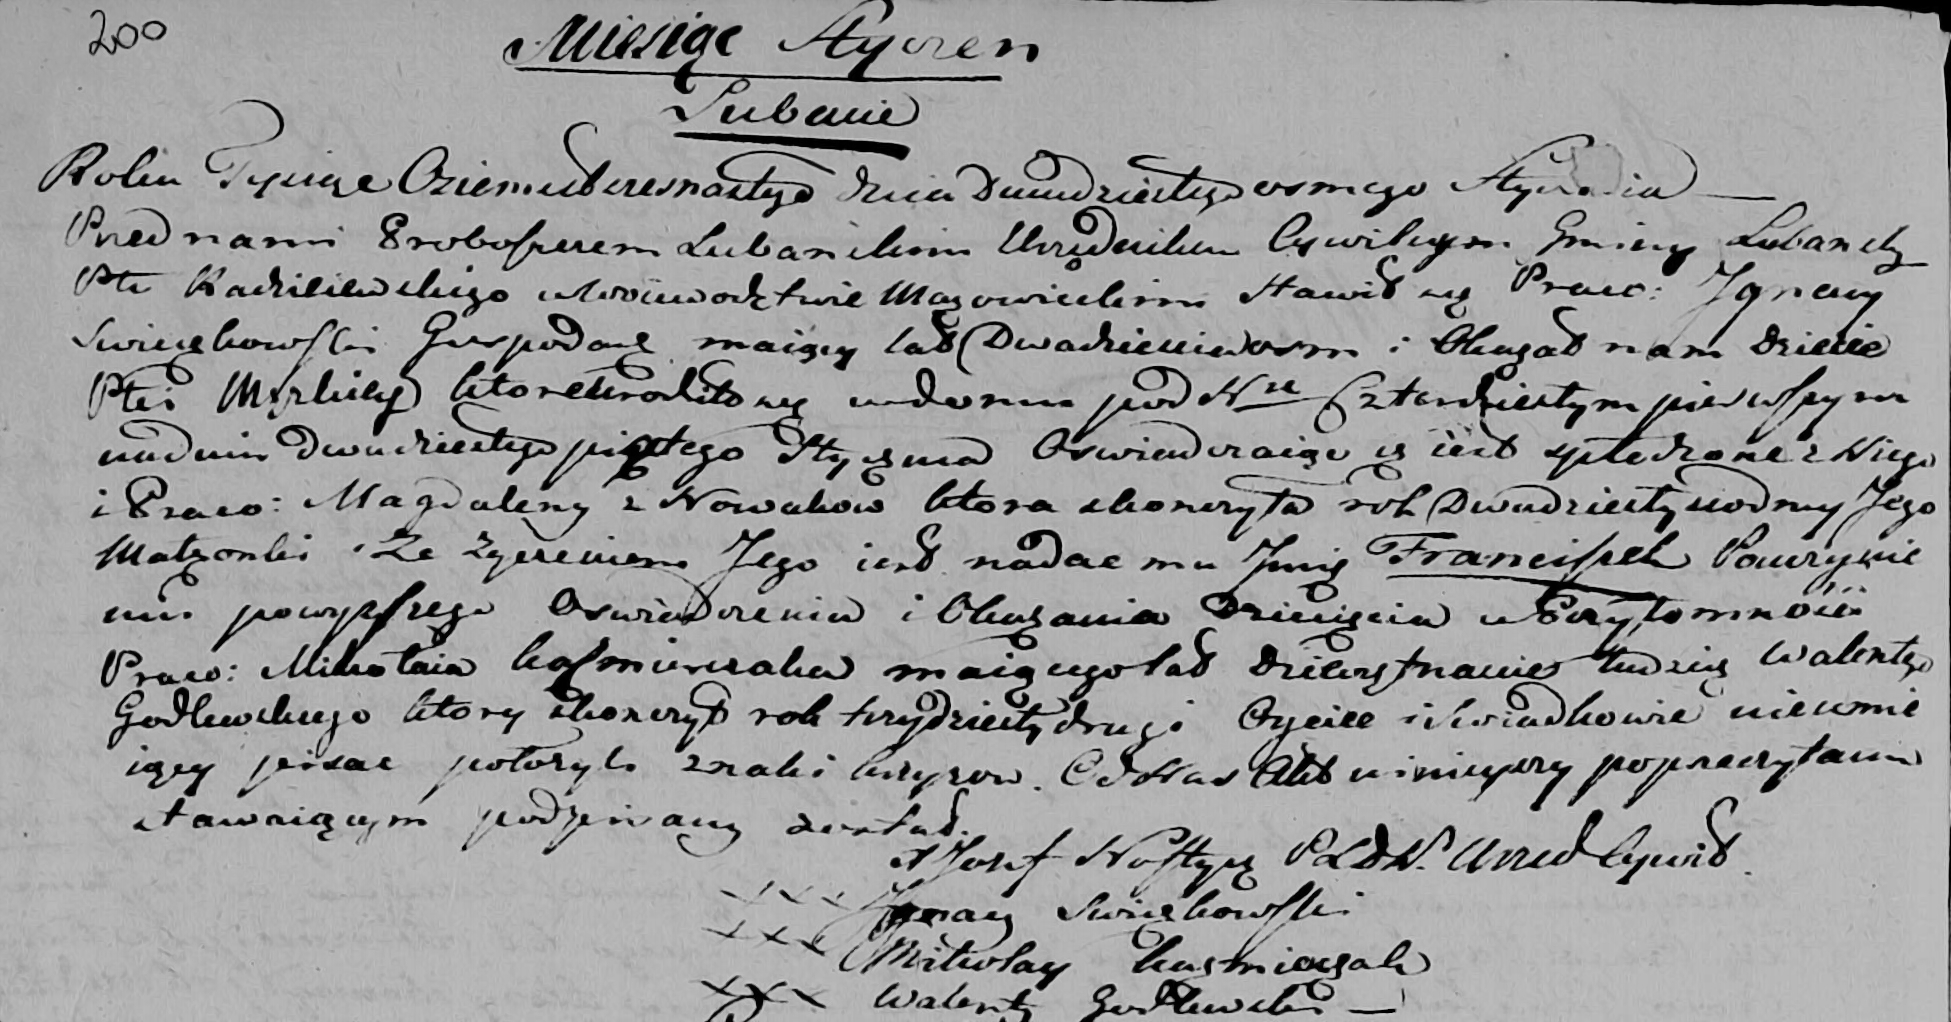 200
Miesiąc Styczen
Lubanie
Roku Tysiąc Osiemset dnia Dwudziestego osmego Stycznia
Przed nami Proboszczem Lubanskim Urzędnikiem Cywilnym Gminy Lubansky
Ptu Radzieiewskiego w Woiewodztwie Mazowieckim Stawił się Praco: Jgnacy
Swięchowski Gospodarz maiący lat Dwadziescia osm i Okazał nam dziecie
Płci Męzkiey ktore urodziło się w domu pod Nre Czterdziestym pierwszym
na dniu dwudziestego piątego Stycznia Oswiadczaiąc iż iest spłodzone z Niego
i Praco: Magdaleny z Nowakow ktora skonczyła rok Dwudziesty siodmy Jego
Małzonki i Ze zyczeniem Jego iest nadac mu Jmię Franciszek Pouczynie
niu powyszszego Oswiadczenia i Okazania Dziecięcia w Przytomności
Praco: Mikołaia Kaźmierczaka maiącego lat tudzież Walentego
Godlewskiego ktory skonczył rok trzydziesty drugi Oyciec i Swiadkowie nieumie
iący pisac połozyli znaki krzyzow. Akt ninieyszy po przeczytaniu
stawaiącym podpisany został.
X Jozef Urzed Cywil
xxx Jgnacy Swięchowski
xxx Mikołay Kaźmierczak
xxx Walenty Godlewski